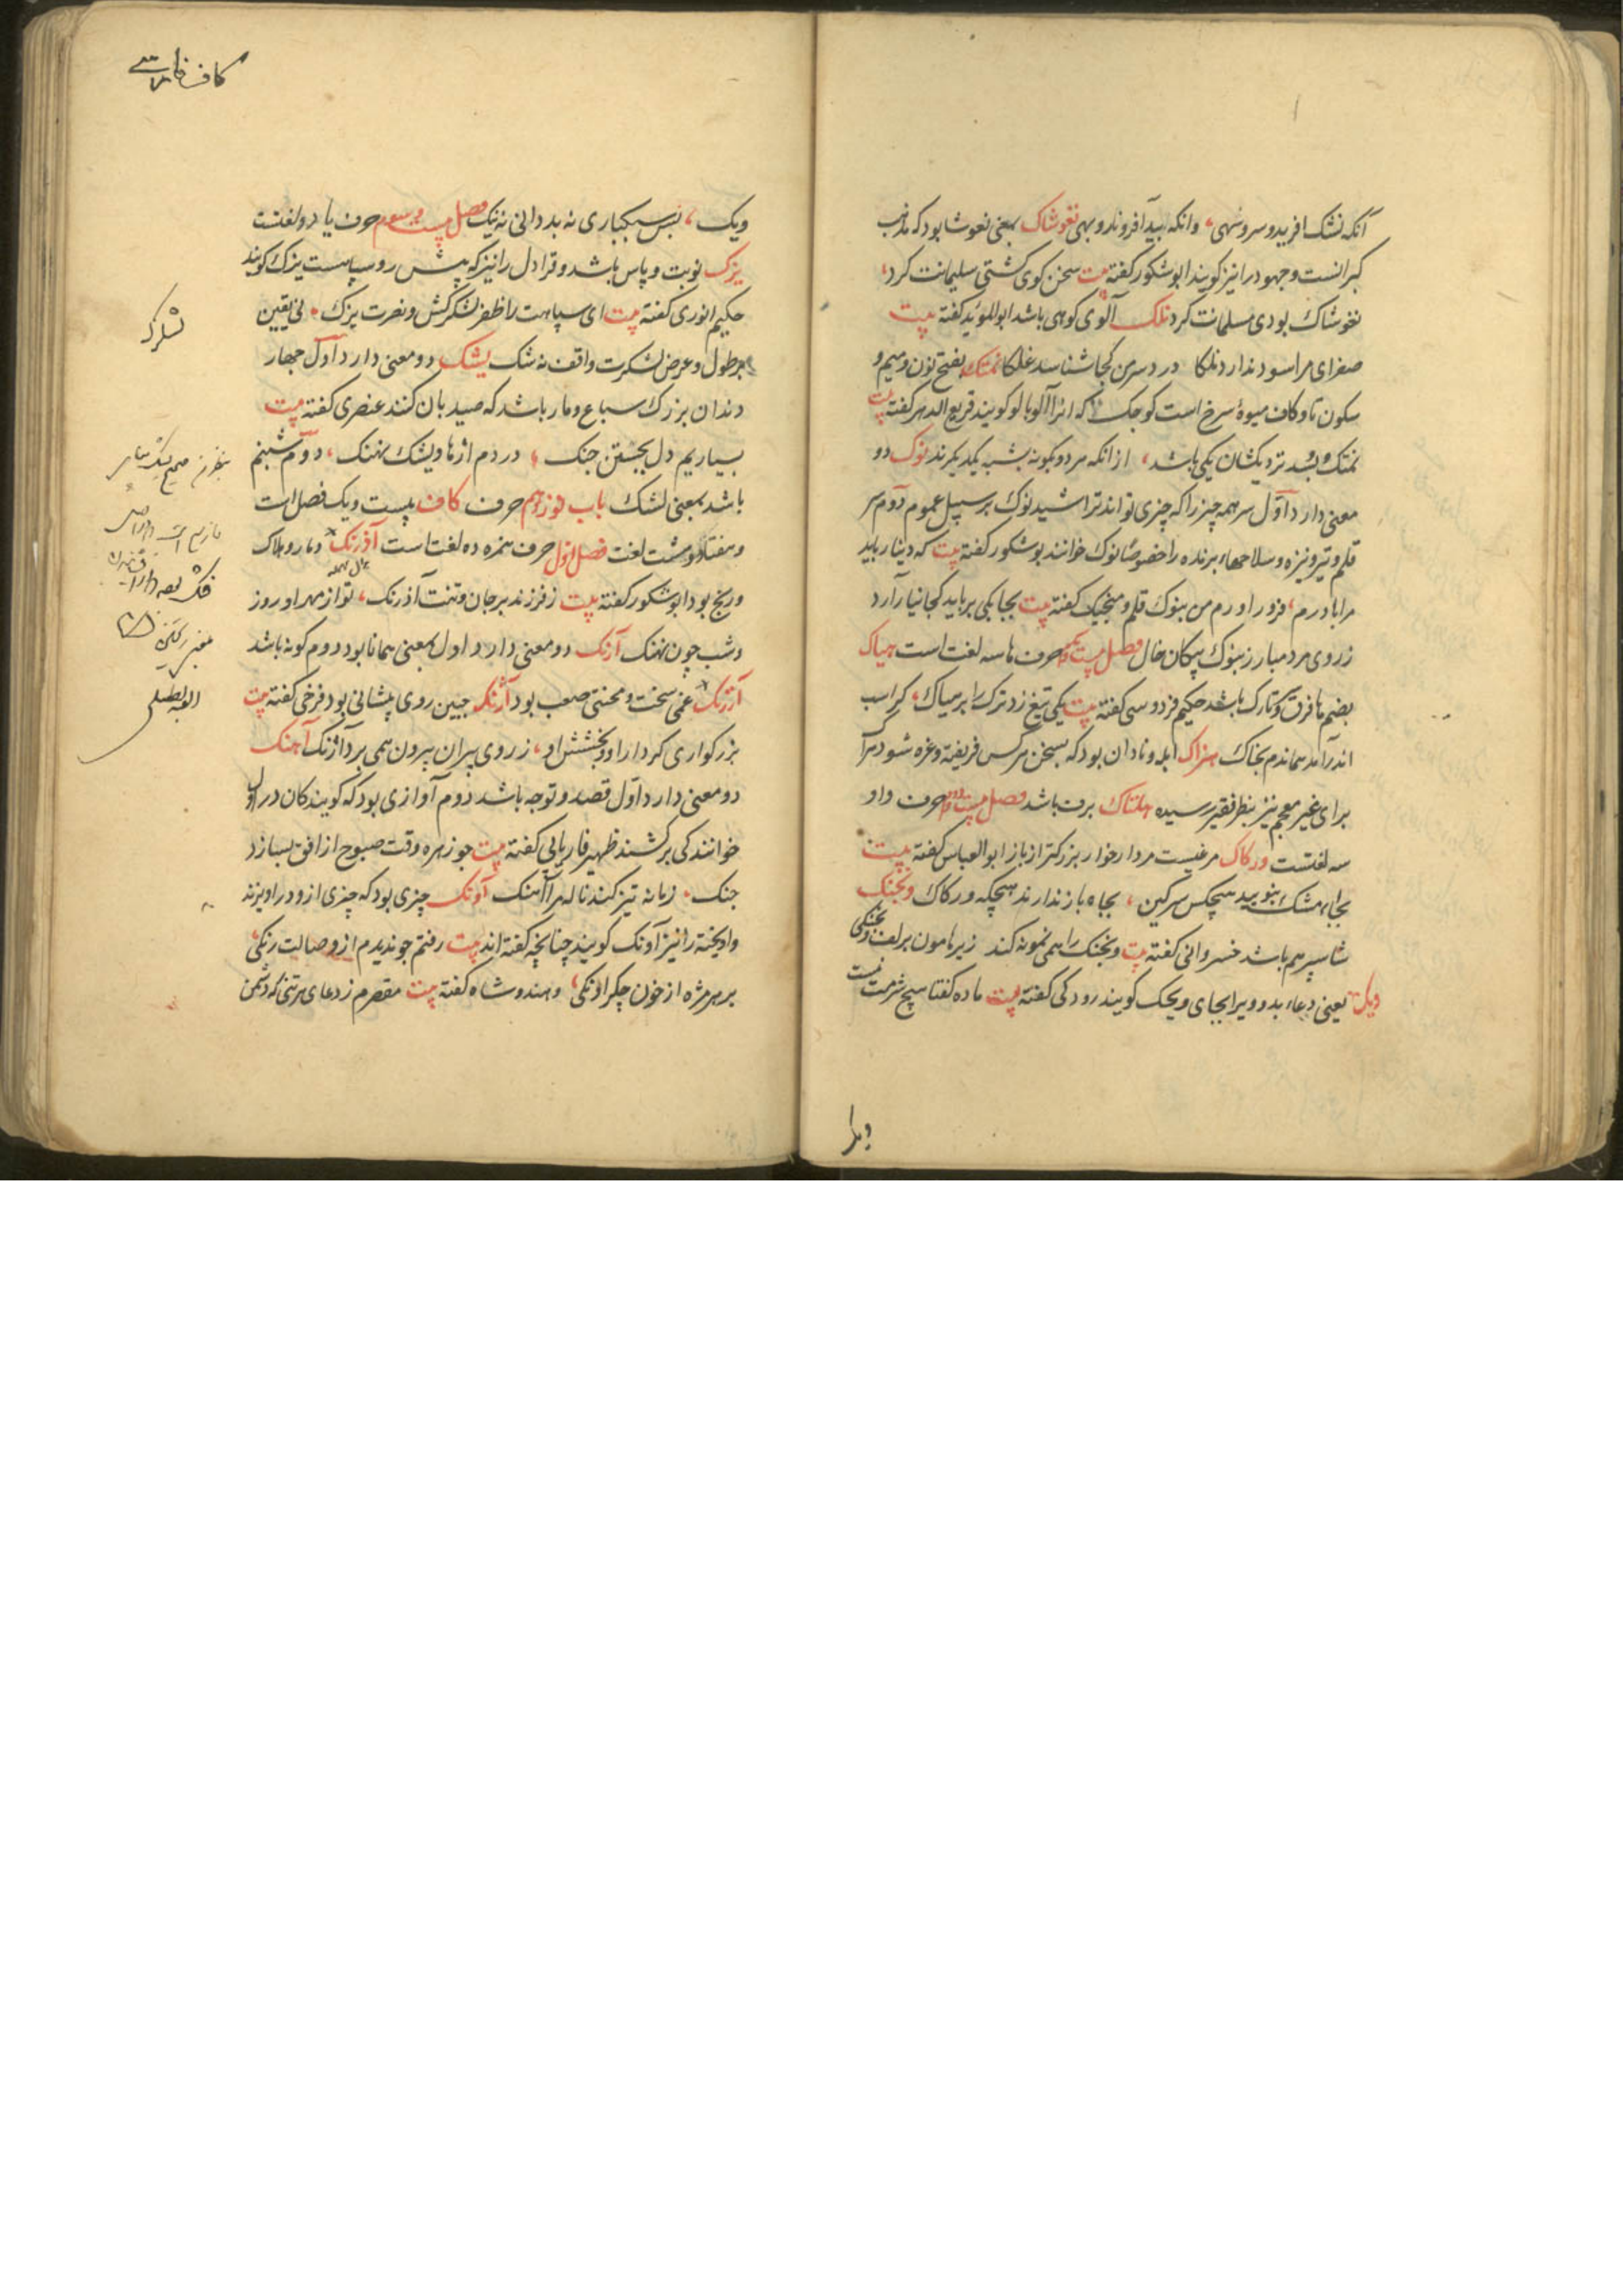 آنکه نشک آفرید و سرو سهی، وانکه بید آفرید و نار و بهی نغوشاک بمعنی نغوشا بود که مذهب
کبرانست و جهود را نیز کویند ابوشکور کفته بیت سخن کوی کشتی سلیمانت کرد،
نغوشاک بودی مسلمانت کرد نلک آلوی کوهی باشد ابوالموید کفته بیت
صفرای مرا سود ندارد نلکا درد سر من کجا شناسد علکا نمتک بفتح نون و میم و
سکون تا و کاف میوهٔ سرخ است کوجک که انرا آلوبالو کویند قریع الدهر کفته بیت
نمتک و بسد نزدیکشان یکی باشد، از انکه هر دو بکونه شبیه یکدیکرند نوک دو
معنی دارد اول سر همه چیز را که چیزی تواند تراشید نوک بر سبیل عموم دوم سر
قلم و تیر و نیزه و سلاحهاء برنده را خصوصا نوک خوانند بوشکور کفته بیت که دینار باید
مرا با درم، فزود اورم من بنوک قلم و منجیک کفته بیت بجابکی برباید کجا نیازارد
ز روی مرد مبارز بنوک پیکان خال فصل بیست و یکم حرف ها سه لغت است هباک
بضم ها فرق و تارک باشد حکیم فردوسی کفته بیت یکی تیغ زد ترک را بر هباک، کز اسب
اندر آمد هماندم بخاک هزاک ابله و نادان بود که بسخن هرکس فریفته و غره شود هزا
برای غیر معجم نیز بنظر فقیر رسیده هلتاک برف باشد فصل بیست و دوم حرف واو
سه لغتست ورکاک مرغیست مردار خوار بزرکتر از باز ابوالعباس کفته بیت
بجاء مشک نبویید هیچکس سرکین، بجاء باز ندارند هیچکه ورکاک ونجنک
شاسپرهم باشد خسروانی کفته بیت ونجنک را همی نمونه کند زیر هامون برلف ونجنکی
ویک یعنی دعاء بد و ویرا بجای ویحک کویند رودکی کفته بیت ماده کفتا هیچ شرمت نیست
ویرا
کاف فارسی
ویک، بس سبکباری نه بد دانی نه نیک فصل بیست و سوم حرف یا دو لغتست
یزک نوبت و پاس باشد و قراول را نیز که پیش رو سپاهست یزک کویند
حکیم انوری کفته بیت ای سپاهت را ظفر لشکرکش و نصرت یزک نی یقین
بر طول و عرض لشکرت واقف نه شک یشک دو معنی دارد اول چهار
دندان بزرک سباع و مار باشد که صید بان کنند عنصری کفته بیت
بسپاریم دل بجستن جنک، در دم اژدها و یشک نهنک، دوم شبنم
باشد بمعنی لشک باب نوزدهم حرف کاف بیست و یک فصل است
و هفتاد و هشت لغت فصل اول حرف همزه ده لغتاست آذرنک دمار و هلاک
بذال معجمه
و رنج بود ابوشکور کفته بیت ز فرزند بر جان و تنت آذرنک، تو از مهر او روز
و شب چون نهنک آرنک دو معنی دارد اول بمعنی همانا بود دوم کونه باشد
آزرنک غمی سخت و محنتی صعب بود آژنک جبین روی پیشانی بود فرخی کفته بیت
بزرکواری کردار او و بخشش او، ز روی پیران بیرون همی برد آژنک آهنک
دو معنی دارد اول قصد و توجه باشد دوم آوازی بود که کویندکان در اول
خوانندکی برکشند ظهیر فاریابی کفته بیت جو زهره وقت صبوح از افق بسازد
جنک زمانه تیز کند ناله مرا آهنک آونک چیزی بود که چیزی ازو در اویزند
و اویخته را نیز آونک کویند چنانچه کفته اند بیت رفتم جو ندیدم از وصالت رنکی،
بر هر مژه از خون جکر اونکی، و هندوشاه کفته بیت مقصرم ز دعای هر تنی که دشمن